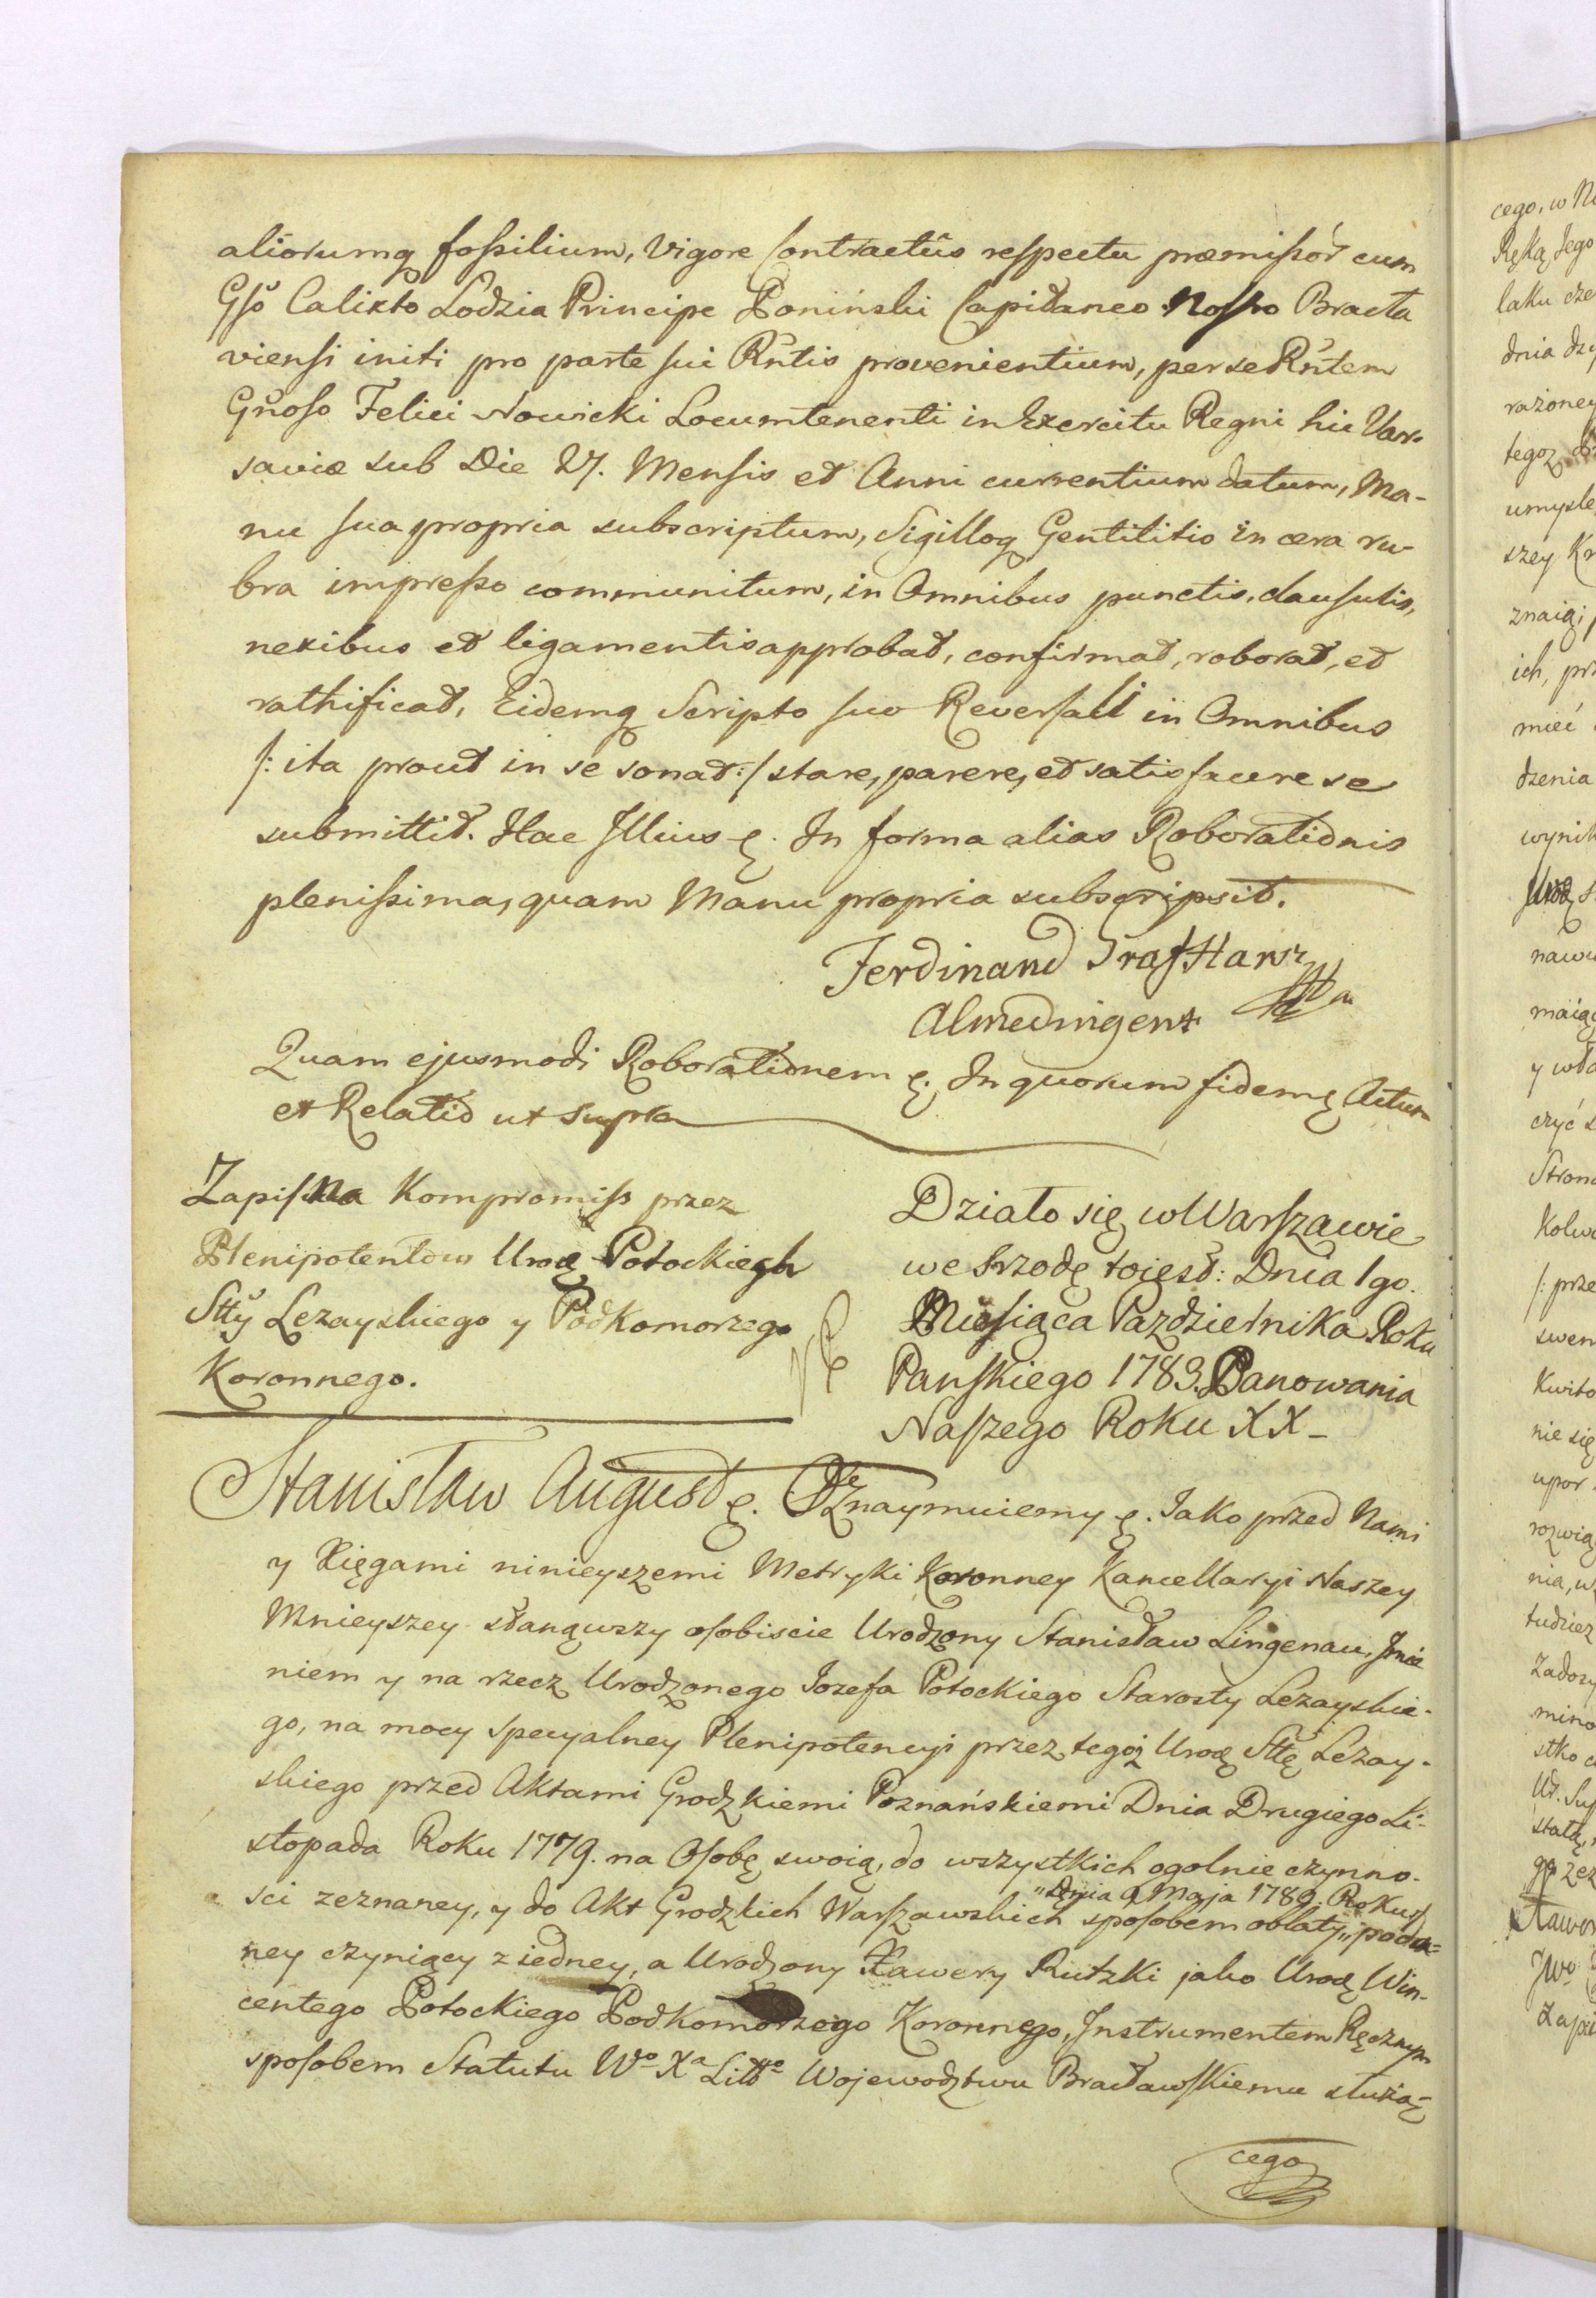 aliorumq fossilium, Vigore Contractûs respectu præmissor̃ cum
Gso Calixto Lodzia Principe Poninski Capitaneo Nostro Bracta
viensi initi pro parte sui Rñtis provenientium, per se Rñtem
Gñoso Felici Nowicki Locumtenenti in Exercitu Regni hic Var-
saviæ sub Die 27. Mensis et Anni currentium datum, Ma-
nu sua propria subscriptum, Sigilloq Gentilitio in cera ru-
bra impresso communitum, in Omnibus punctis, clausulis,
nexibus et ligamentis approbat, confirmat, roborat, et
rathificat, Eidemq Scripto suo Reversali in Omnibus
/: ita prout in se sonat :/ stare, parere, et satisfacere se
submittit. Hac Illius ę. In forma alias Roborationis
plenissima, quam Manu propria subscripsit.
Ferdinand Graf
Quam ejusmodi Roborationem ę. In quorum fidem ę Actum
et Relatio ut supra
Zapis na Kompromiss przez
Plenipotentow Urodę Potockiech
Stty Lezayskiego y Podkomorzego
Koronnego.
Działo się w Warszawie
we Srzodę toiest: Dnia 1go.
Miesiąca Pazdziernika Roku
Panskiego 1783. Panowania
Naszego Roku XX-
Stanisław August ę. Oznaymuiemy ę. Iako przed Nami
y Xięgami ninieyszemi Metryki Koronney Kancellaryi Naszey
Mnieyszey stanąwszy osobiscie Urodzony Stanisław Lingenau, Imie
niem y na rzecz Urodzonego Iozefa Potockiego Starosty Lezayskie-
go, na mocy specyalney Plenipotencyi przez tegoż Urodę Sttę Lezay-
skiego przed Aktami Grodzkiemi Poznańskiemi Dnia Drugiego Li-
stopada Roku 1779. na Osobę swoią, do wszystkich ogolnie czynno-
"Dnia 9 Maja 1780. Roku"
sci zeznaney, y do Akt Grodzkich Warszawskich sposobem oblaty,, poda-
ney czyniący z iedney, a Urodzony Xawery Rutzki jako Urodę Win-
centego Potockiego Podkomorzego Koronnego, Instrumentem Ręcznym
sposobem Statutu Wo Xa Littgo Wojewodztwu Bracławskiemu służą
cego